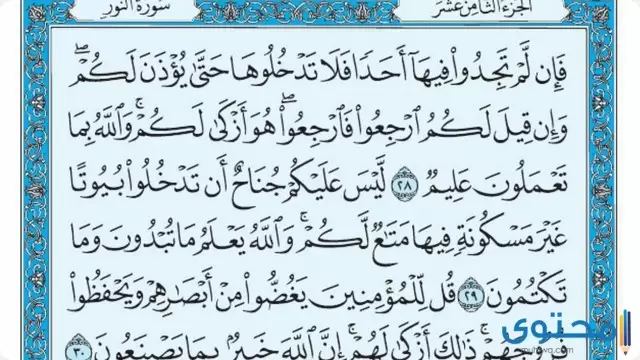 الجزء الثامن عشر
سورة النور
فَإِن لَّمْ تَجِدُوا۟ فِيهَآ أَحَدًا فَلَا تَدْخُلُوهَا حَتَّىٰ يُؤْذَنَ لَكُمْ ۖ
وَإِن قِيلَ لَكُمُ ٱرْجِعُوا۟ فَٱرْجِعُوا۟ ۖ هُوَ أَزْكَىٰ لَكُمْ ۚ وَٱللَّهُ بِمَا
تَعْمَلُونَ عَلِيمٌ ٢٨ لَّيْسَ عَلَيْكُمْ جُنَاحٌ أَن تَدْخُلُوا۟ بُيُوتًا
غَيْرَ مَسْكُونَةٍ فِيهَا مَتَـٰعٌ لَّكُمْ ۚ وَٱللَّهُ يَعْلَمُ مَا تُبْدُونَ وَمَا
تَكْتُمُونَ ٢٩ قُل لِّلْمُؤْمِنِينَ يَغُضُّوا۟ مِنْ أَبْصَـٰرِهِمْ وَيَحْفَظُوا۟
ذَٰلِكَ أَزْكَىٰ لَهُمْ ۗ إِنَّ ٱللَّهَ خَبِيرٌۢ بِمَا يَصْنَعُونَ ٣٠
محتوى